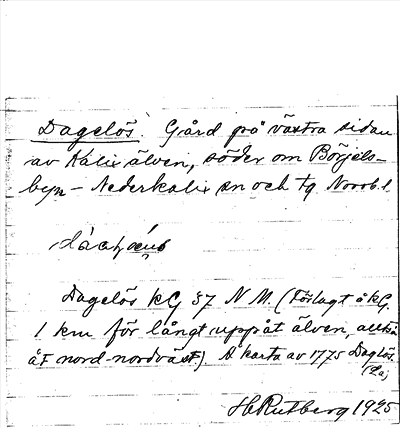 Dagelös. Gård på västra sidan
av Kalix älven, söder om Börjels-
byn – Nederkalix sn och tg Norrb. l
Dagelös kG 37 N M. (Förlagt å kG
1 km för långt uppåt älven, alltså
åt nord-nordväst) Å karta av 1775 Daglös
H Rutberg 1925